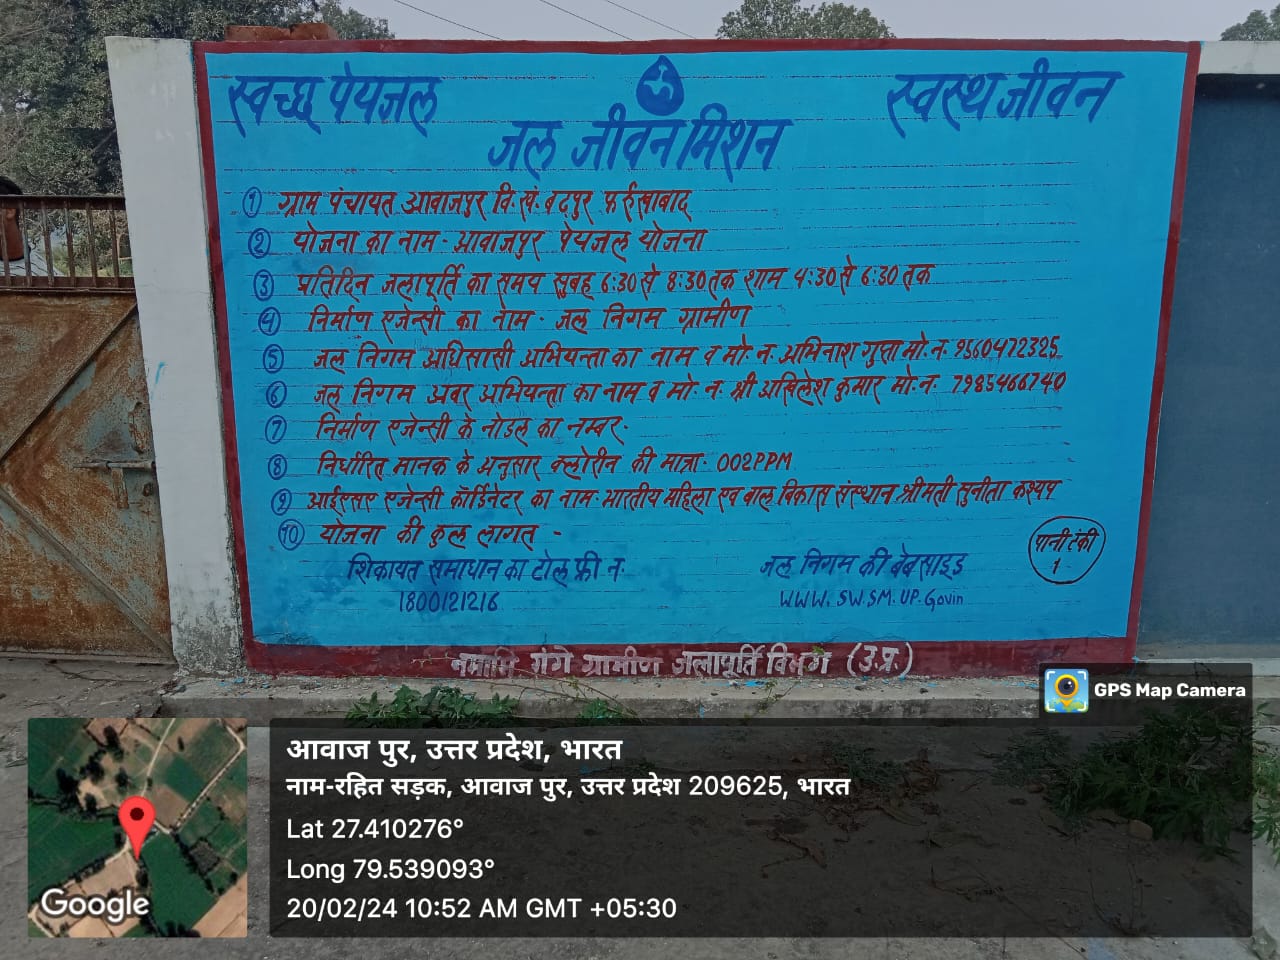 स्वच्छ पेयजल
स्वस्थ जीवन
जल जीवन मिशन
① ग्राम पंचायत आवाजपुर वि.खं. बढपुर फर्रुखाबाद
② योजना का नाम - आवाजपुर पेयजल योजना
③ प्रतिदिन जलापूर्ति का समय सुबह 6:30 से 8:30 तक शाम 4:30 से 6:30 तक
④ निर्माण एजेन्सी का नाम - जल निगम ग्रामीण
⑤ जल निगम अधिसासी अभियन्ता का नाम व मो. न. अभिनाश गुप्ता मो. न. 9560472325
⑥ जल निगम अवर अभियन्ता का नाम व मो. न. श्री अखिलेश कुमार मो. न. 7985466740
⑦ निर्माण एजेन्सी के नोडल का नम्बर -
⑧ निर्धारित मानक के अनुसार क्लोरीन की मात्रा - 002PPM
⑨ आईएसए एजेन्सी कॉर्डिनेटर का नाम - भारतीय महिला एव बाल विकास संस्थान श्रीमती सुनीता कश्यप
⑩ योजना की कुल लागत -
पानी टंकी
1
शिकायत समाधान का टोल फ्री न.
1800121216
जल निगम की बेबसाइड
WWW. SW.SM. UP. Govin
नमामि गंगे ग्रामीण जलापूर्ति विभाग (उ.प्र.)
GPS Map Camera
आवाज पुर, उत्तर प्रदेश, भारत
नाम-रहित सड़क, आवाज पुर, उत्तर प्रदेश 209625, भारत
Lat 27.410276°
Long 79.539093°
20/02/24 10:52 AM GMT +05:30
Google